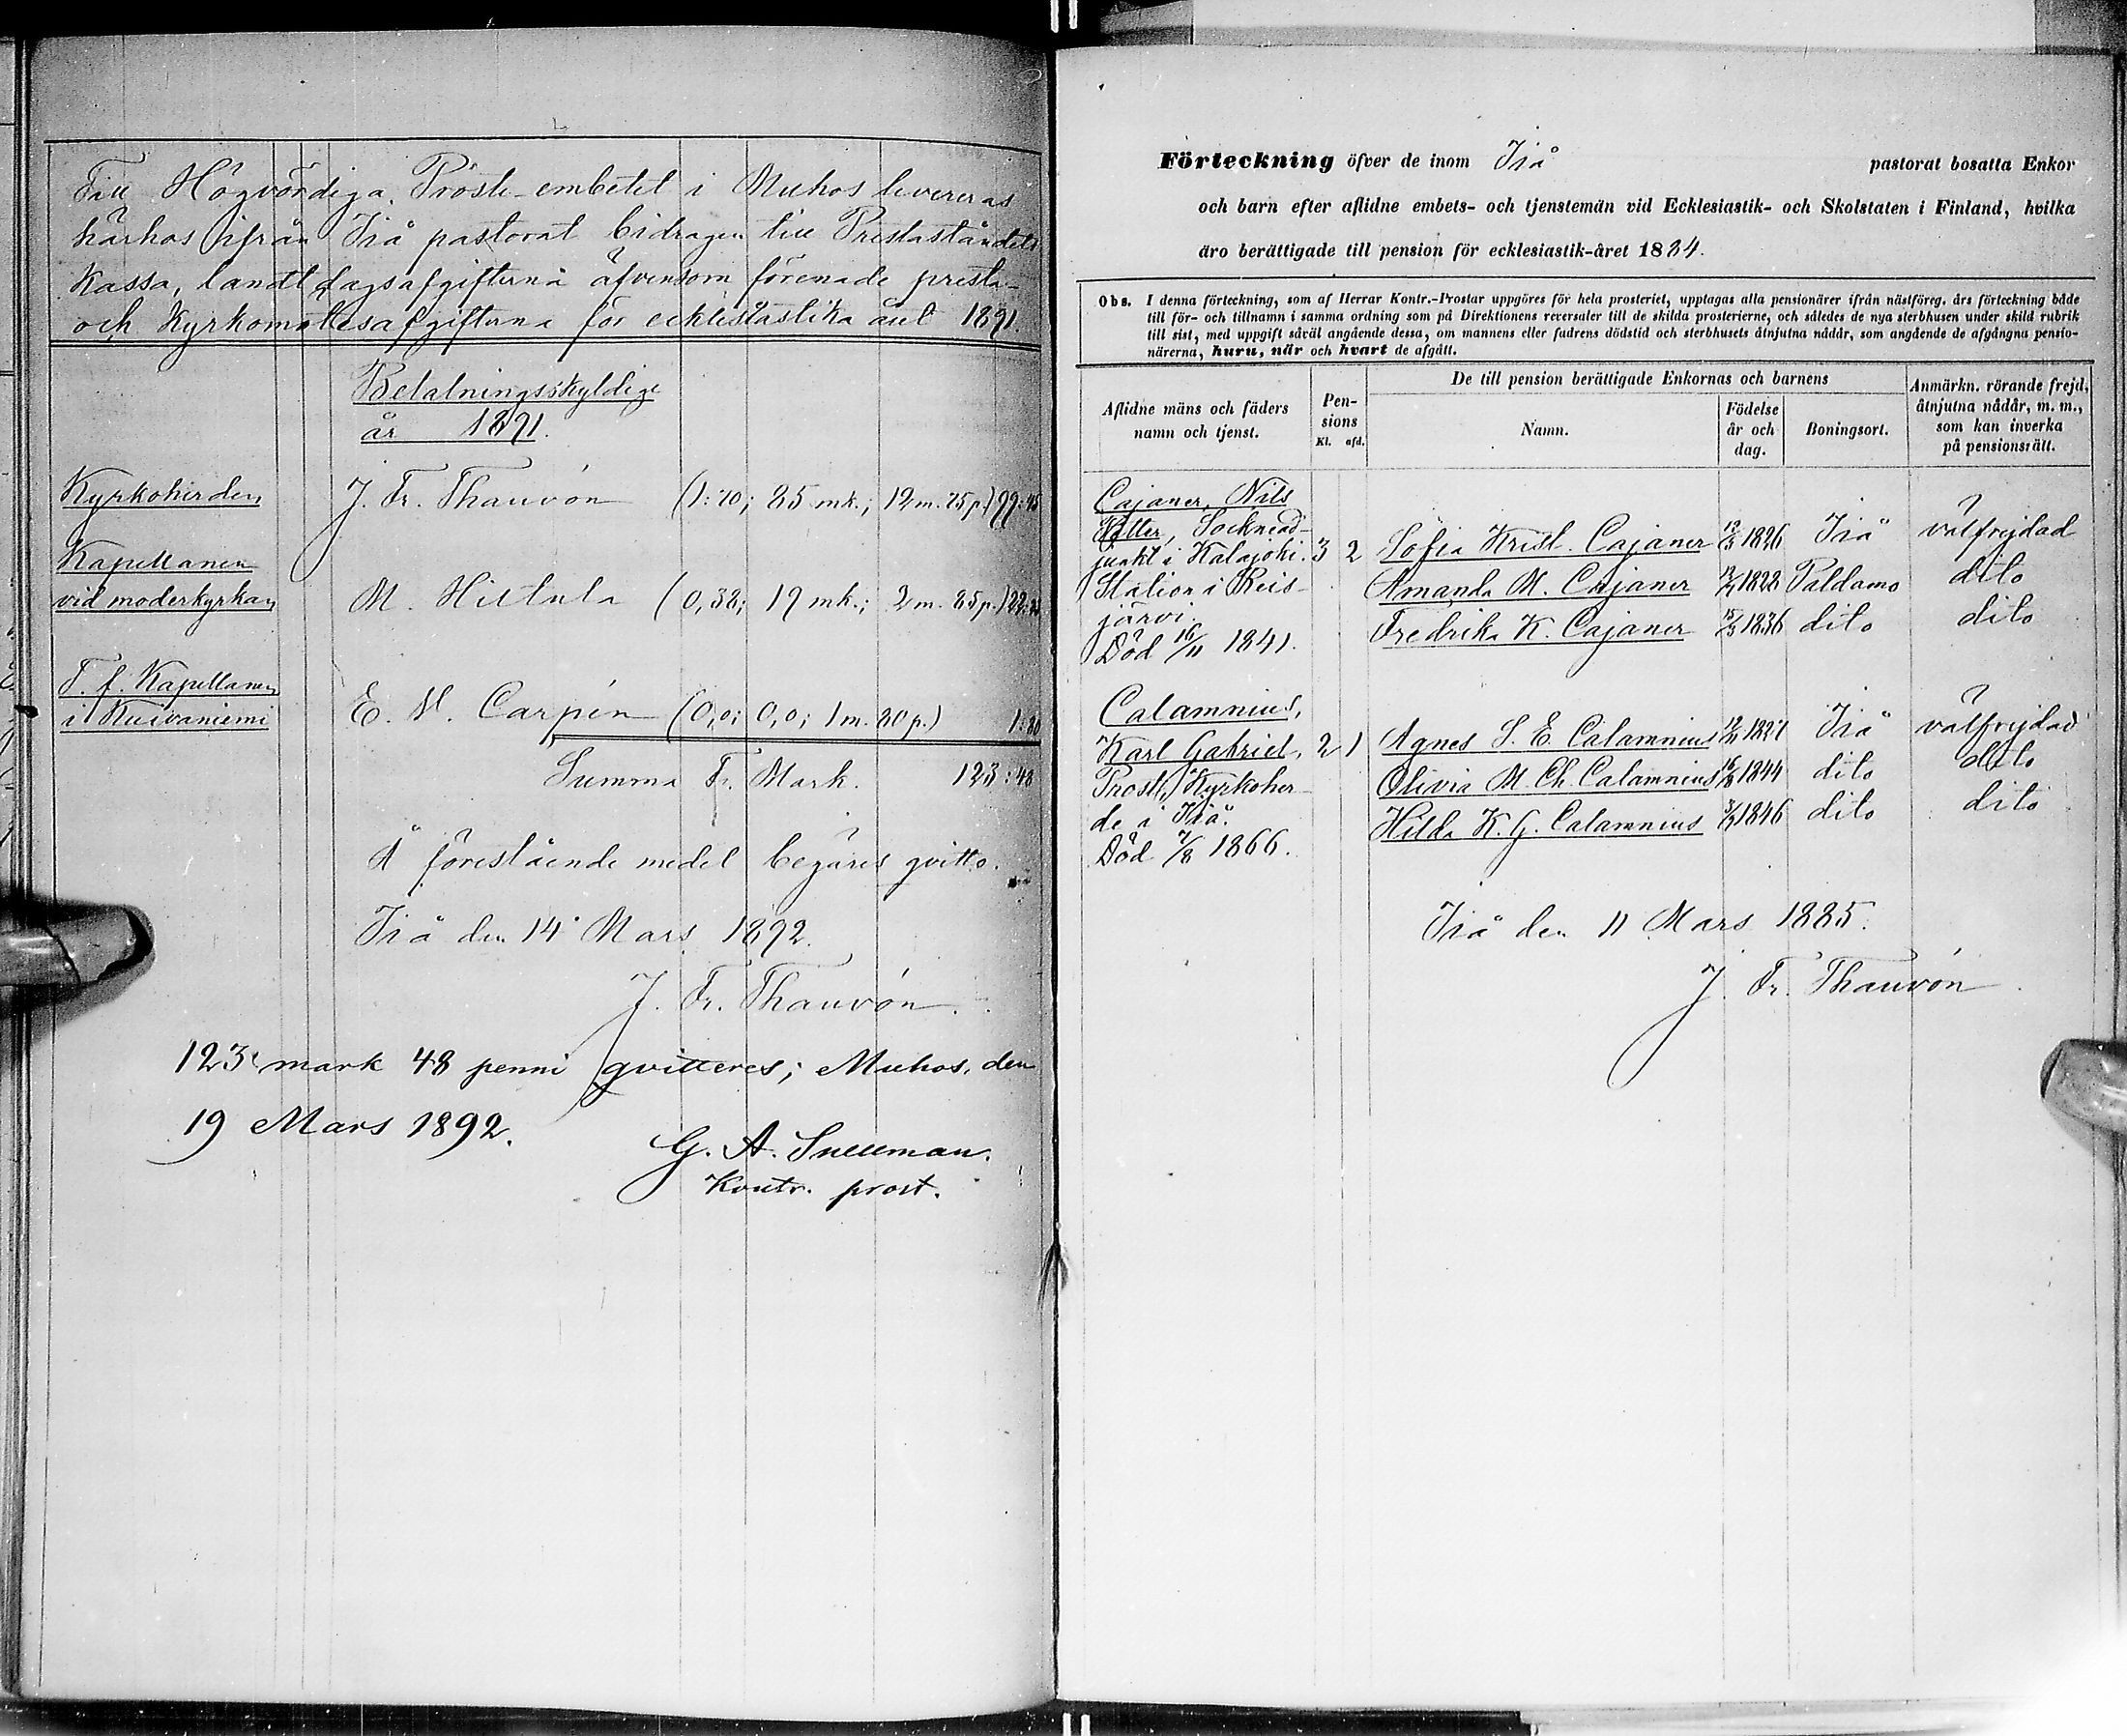 Till Högvördiga Prost-embetet i Muhos levereras
härhos ifrån Iiå pastorat bidragen till Prestaståndets
Kassa, landtdagsafgifterna äfvensom förenade presta-
och Kyrkomötesafgifterna för ecklesiastika året 1891.
Betalningsskyldige
år 1891.
Kyrkoherden J. Fr. Thauvón (1:70; 85 mk.; 12 m. 75 p.) 99:45
Kapellanen
vid moderkyrkan M. Histula (0,38; 19 mk.; 2 m. 85 p.) 22:23
T. f. Kapellanen
i Kuivaniemi E. V. Carpén (0,0; 0,0; 1 m. 80 p.) 1:80
Summa Fr. Mark. 123:48
Å förestående medel begäres qvitto.
Iiå den 14 Mars 1892.
J. Fr. Thauvón.
123 mark 48 penni qvitteres; Muhos, den
19 Mars 1892.
G. A. Snellman.
Kontr. prost.
Förteckning öfver de inom Iiå pastorat bosatta Enkor
och barn efter aflidne embets- och tjenstemän vid Ecklesiastik- och Skolstaten i Finland, hvilka
äro berättigade till pension för ecklesiastik-året 1884.
Obs. I denna förteckning, som af Herrar Kontr.-Prostar uppgöres för hela prosteriet, upptagas alla pensionärer ifrån nästföreg. års förteckning både
till för- och tillnamn i samma ordning som på Direktionens reversaler till de skilda prosterierne, och således de nya sterbhusen under skild rubrik
till sist, med uppgift såväl angående dessa, om mannens eller fadrens dödstid och sterbhusets åtnjutna nådår, som angående de afgångna pensio-
närerna, huru, när och hvart de afgått.
Aflidne mäns och fäders
namn och tjenst.
Pen-
sions
Kl. afd.
De till pension berättigade Enkornas och barnens
Namn.
Födelse
år och
dag.
Boningsort.
Anmärkn. rörande frejd,
åtnjutna nådår, m. m.,
som kan inverka
på pensionsrätt.
Cajaner, Nils
Petter, Socknead-
junkt i Kalajoki. 3 2 Sofia Krist. Cajaner 1826 Iiå välfrejdad
Station i Reis- Amanda M. Cajaner 1828 Paldamo dito
järvi. Fredrika K. Cajaner 1836 dito dito
Död 16/11 1841.
Calamnius,
Karl Gabriel, 2 1 Agnes S. E. Calamnius 1821 Iiå välfrejdad
Prost, Kyrkoher- Olivia M. Ch. Calamnius 1844 dito dito
de i Iiå. Hilda K. G. Calamnius 1846 dito dito
Död 7/8 1866.
Iiå den 11 Mars 1885.
J. Fr. Thauvón